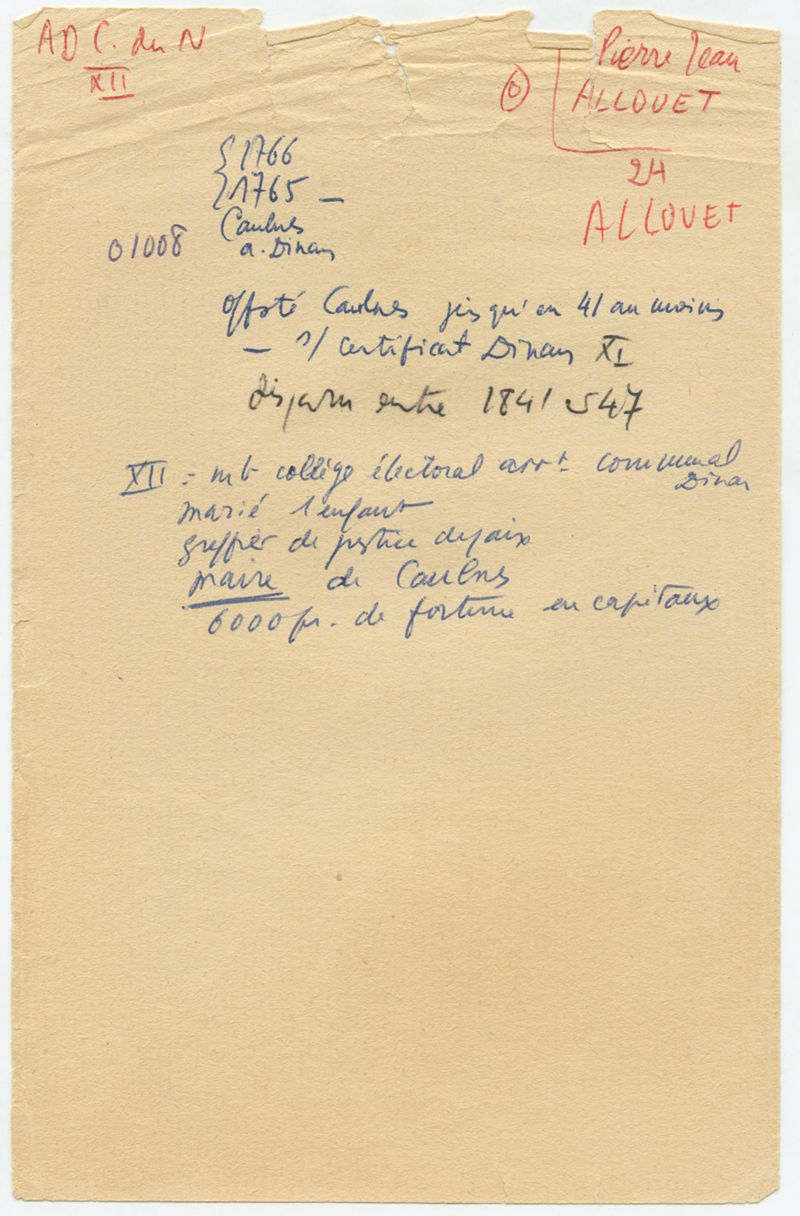 AD C. du N
XII
Pierre Jean
ALLOUET
24
ALLOUET
{ 1766
1765 —
Caulnes
a. Dinan
01008
Caulnes jusqu'en 41 au moins
— 1/ certificat Dinan XI
disparu entre 1841 47
XII = mb collège électoral arrt communal
Dinan
marié 1 enfant
greffier de justice de paix
maire de Caulnes
6000 fr. de fortune en capitaux